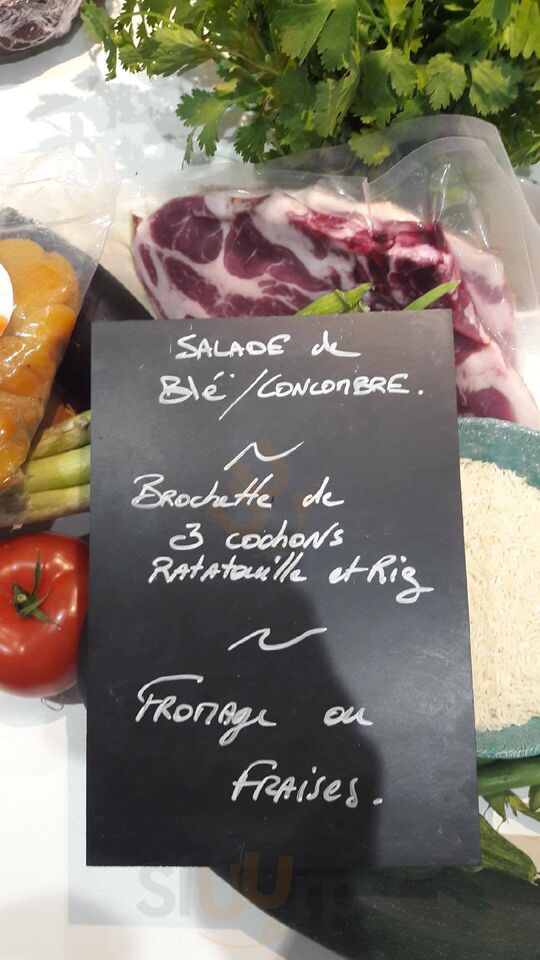 SALADE de
Blé / CONCOMBRE.
~
Brochette de
3 cochons
RATATouille et Riz
~
FROMAge ou
FRAises.
Sluurpy